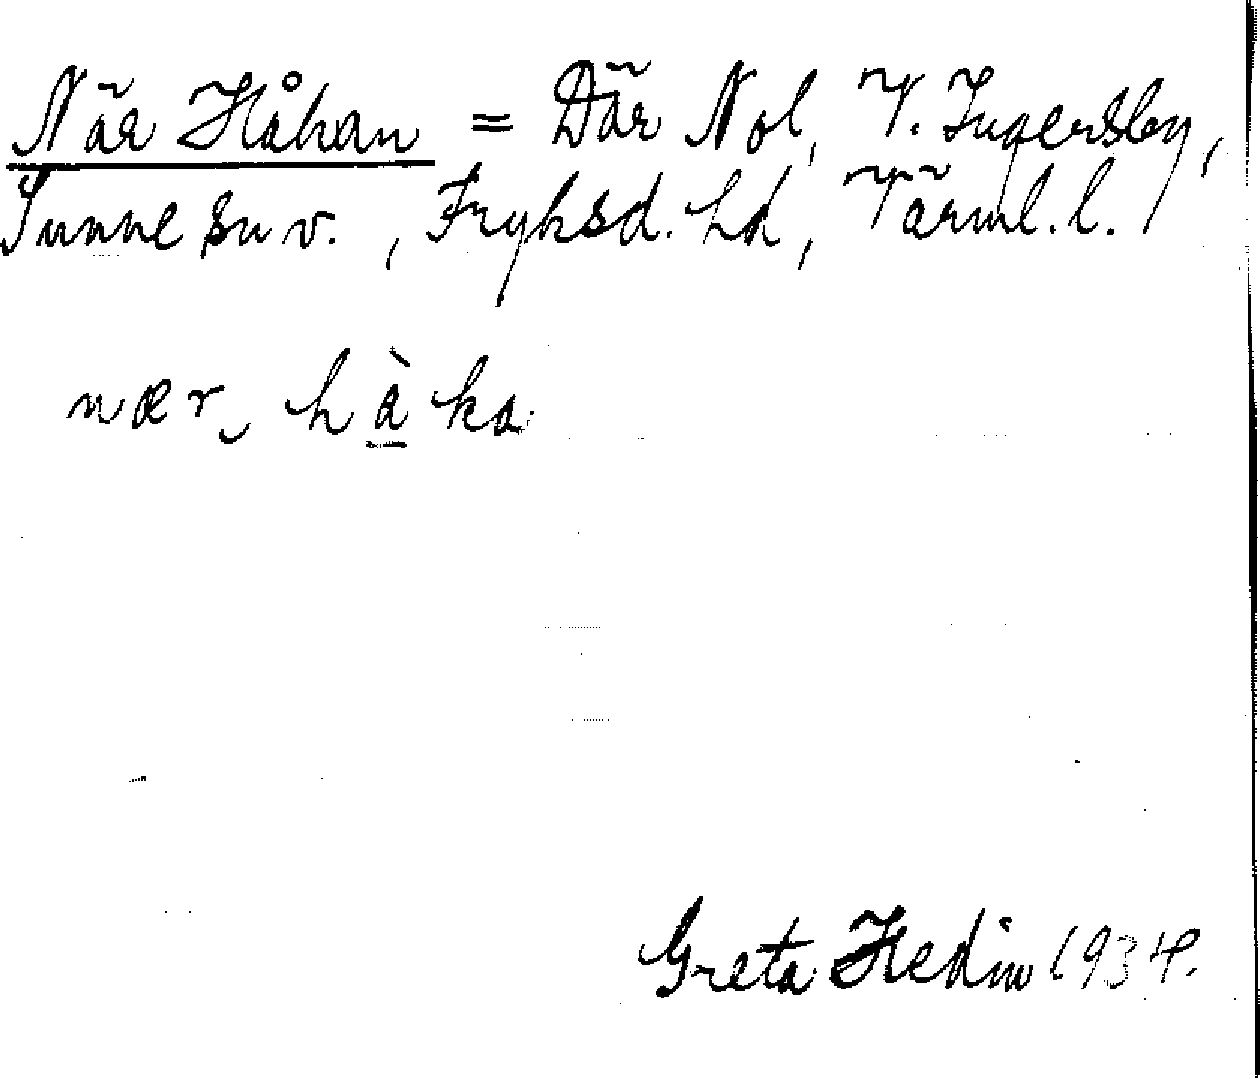 När Håkan = Där Nol, V. Ingersby,
Sunne sn v., Fryksd. hd, Värml. l.
nær, hà̱ka
Greta Hedin 1934.